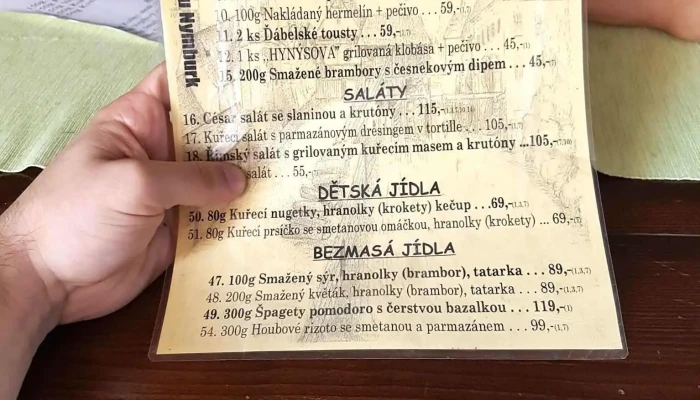 u Nymburk
10. 100g Nakládaný hermelín + pečivo . . . 59,-(1,7)
11. 2 ks Ďábelské tousty . . . 59,-
12. 1 ks „HYNYSOVA" grilovaná klobása + pečivo . . . 45,-
15. 200g Smažené brambory s česnekovým dipem . . . 45,-
SALÁTY
16. César salát se slaninou a krutóny . . . 115,-
17. Kuřecí salát s parmazánovým dresingem v tortille . . . 105,-
18. Římský salát s grilovaným kuřecím masem a krutóny ...105,-
salát . . . 55,-
DĚTSKÁ JÍDLA
50. 80g Kuřecí nugetky, hranolky (krokety) kečup . . . 69,-
51. 80g Kuřecí prsíčko se smetanovou omáčkou, hranolky (krokety) ... 69,-
BEZMASÁ JÍDLA
47. 100g Smažený sýr, hranolky (brambor), tatarka . . . 89,-(1,3,7)
48. 200g Smažený květák, hranolky (brambor), tatarka . . . 89,-(1,3,7)
49. 300g Špagety pomodoro s čerstvou bazalkou . . . 119,-(1)
54. 300g Houbové rizoto se smetanou a parmazánem . . . 99,-(1,7)